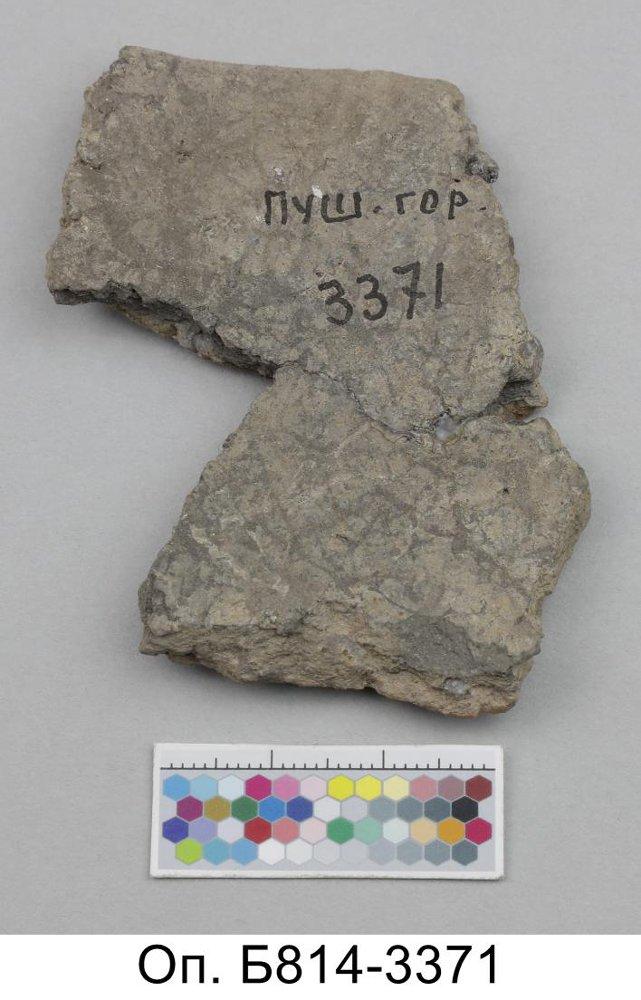 ПУШ. ГОР.
3371
Оп. Б814-3371